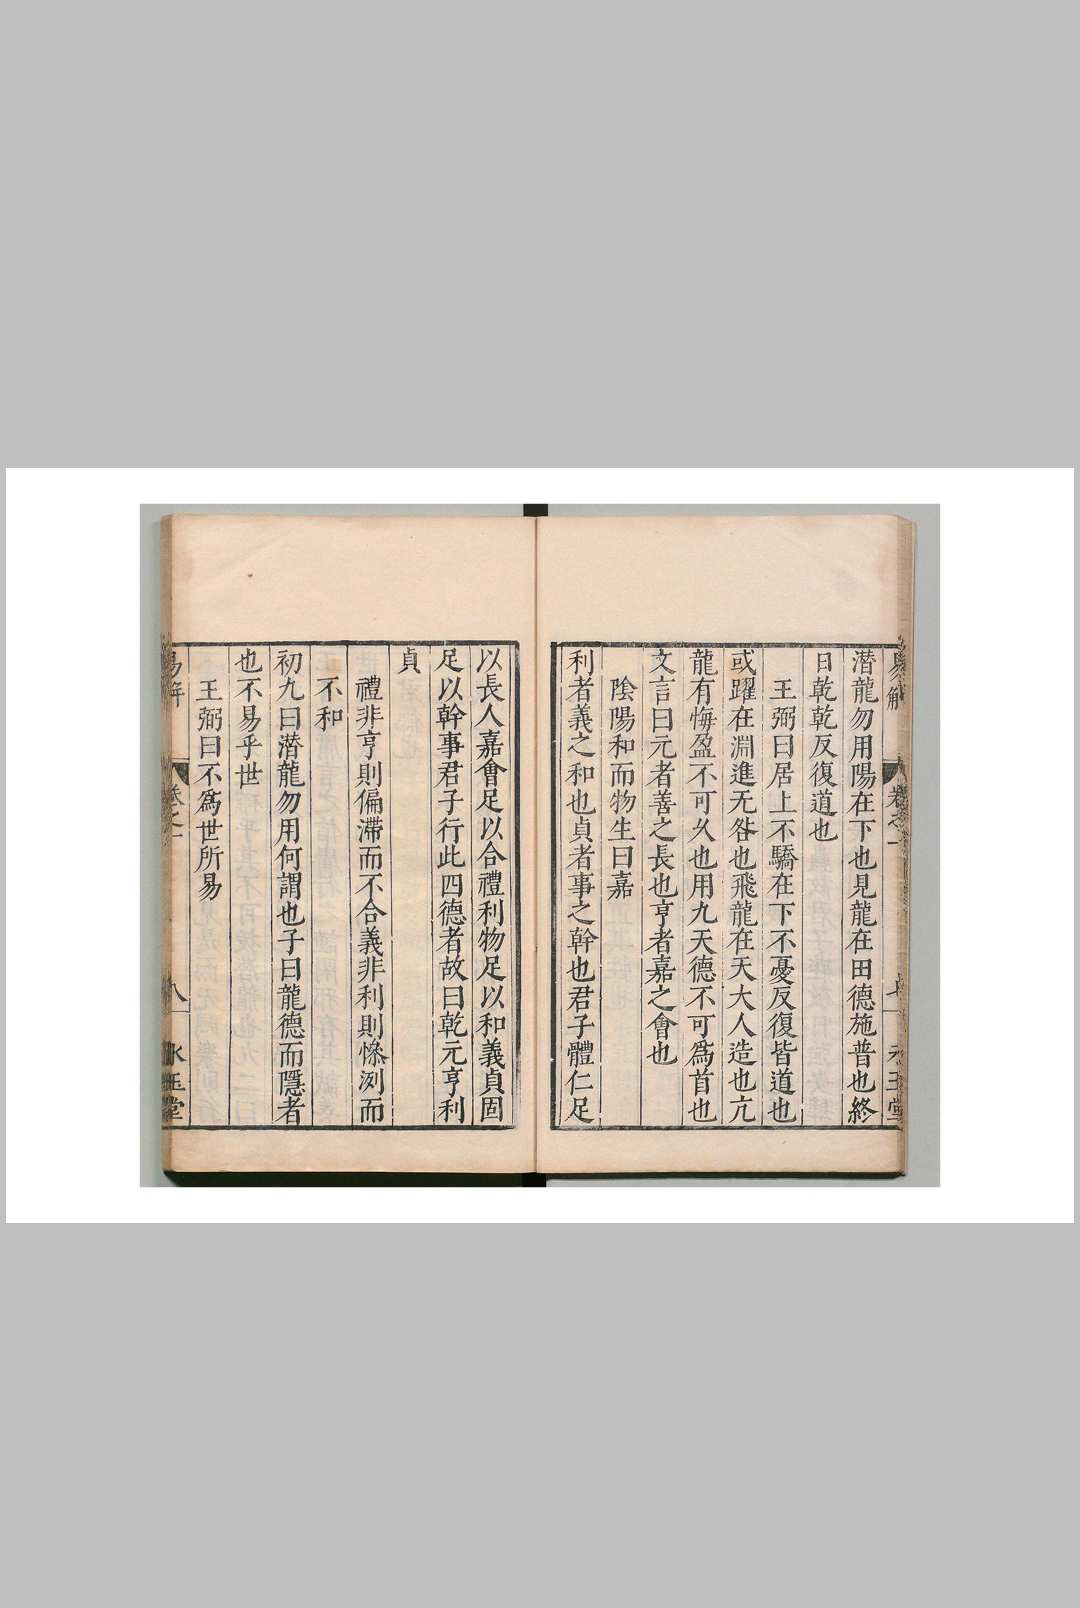 潛龍勿用陽在下也見龍在田德施普也終
日乾乾反復道也
王弼曰居上不驕在下不憂反復皆道也
或躍在淵進无咎也飛龍在天大人造也亢
龍有悔盈不可久也用九天德不可為首也
文言曰元者善之長也亨者嘉之會也
陰陽和而物生曰嘉
利者義之和也貞者事之幹也君子體仁足
以長人嘉會足以合禮利物足以和義貞固
足以幹事君子行此四德者故曰乾元亨利
貞
禮非亨則偏滯而不合義非利則慘洌而
不和
初九曰潛龍勿用何謂也子曰龍德而隱者
也不易乎世
王弼曰不為世所易
易解
卷之一
八